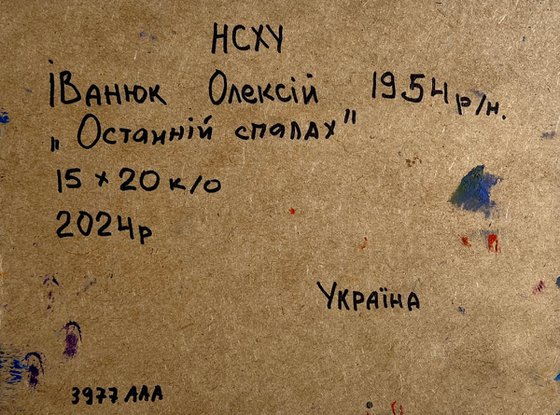 НСХУ
Іванюк Олексій 1954 р/н.
„Останній спалах"
15 х 20 к/о
2024р
Україна
3977 ААА